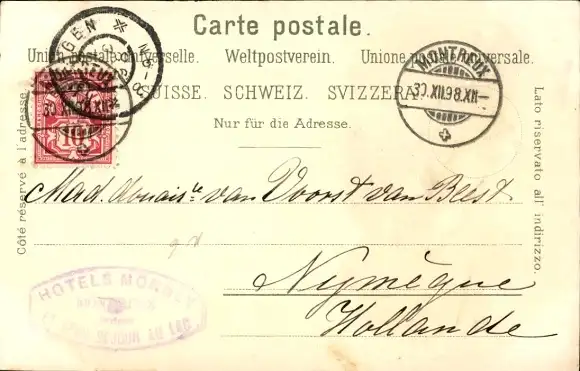 Carte postale.
Union postale universelle. Weltpostverein. Unione postale universale.
SUISSE. SCHWEIZ. SVIZZERA.
Nur für die Adresse.
Côté réservé à l'adresse.
Lato riservato all' indirizzo.
MONTREUX
30.XII.98.XII-
10
van Voorst van Beest
Nymègue
Hollande
HOTELS
AU LAC